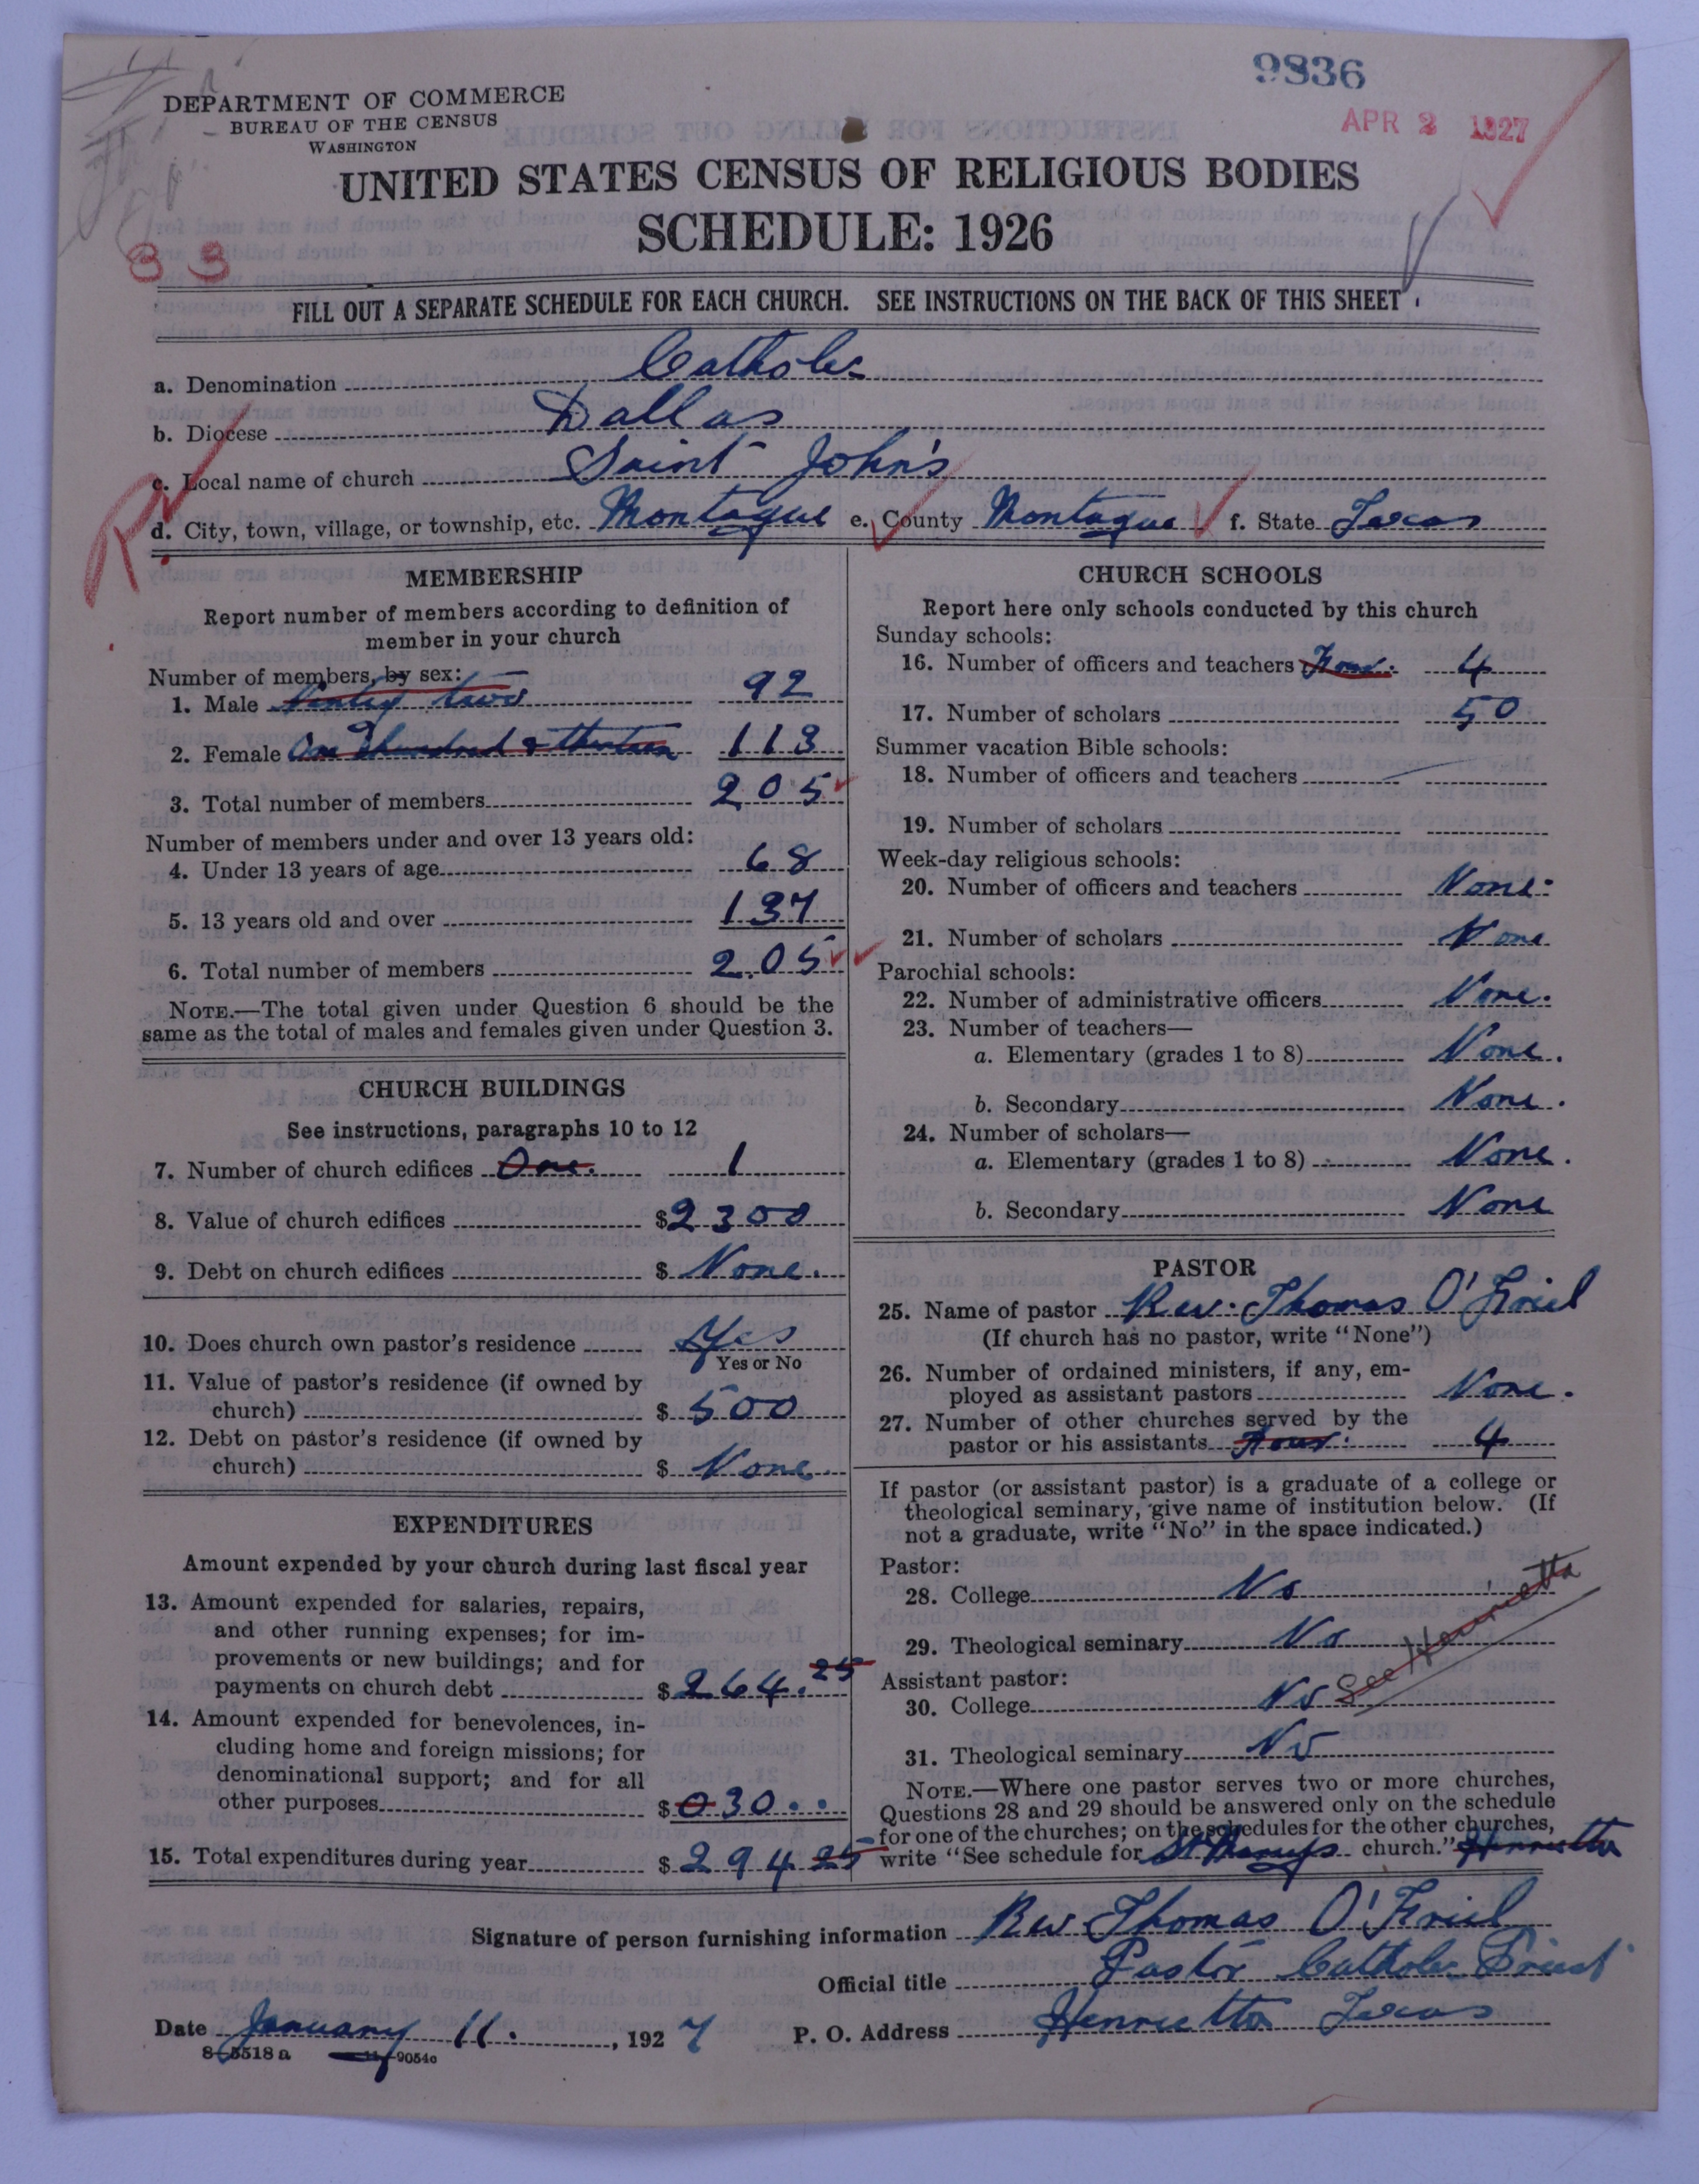 9836
APR 2 1927
DEPARTMENT OF COMMERCE
BUREAU OF THE CENSUS
WASHINGTON
UNITED STATES CENSUS OF RELIGIOUS BODIES
SCHEDULE: 1926
3 3
FILL OUT A SEPARATE SCHEDULE FOR EACH CHURCH. SEE INSTRUCTIONS ON THE BACK OF THIS SHEET
a. Denomination Catholic
b. Diocese Dallas
c. Local name of church Saint John's
d. City, town, village, or township, etc. Montague e. County Montague f. State Texas
MEMBERSHIP
Report number of members according to definition of
member in your church
Number of members, by sex:
1. Male Ninty two 92
2. Female One Hundred & thirteen 113
3. Total number of members 205
Number of members under and over 13 years old:
4. Under 13 years of age 68
5. 13 years old and over 137
6. Total number of members 205
NOTE.—The total given under Question 6 should be the
same as the total of males and females given under Question 3.
CHURCH BUILDINGS
See instructions, paragraphs 10 to 12
7. Number of church edifices One. 1
8. Value of church edifices $2300
9. Debt on church edifices $ None.
10. Does church own pastor's residence Yes
Yes or No
11. Value of pastor's residence (if owned by
church) $ 500
12. Debt on pastor's residence (if owned by
church) $ None.
EXPENDITURES
Amount expended by your church during last fiscal year
13. Amount expended for salaries, repairs,
and other running expenses; for im-
provements or new buildings; and for
payments on church debt $264.25
14. Amount expended for benevolences, in-
cluding home and foreign missions; for
denominational support; and for all
other purposes $030..
15. Total expenditures during year $294 25
CHURCH SCHOOLS
Report here only schools conducted by this church
Sunday schools:
16. Number of officers and teachers Four. 4
17. Number of scholars 50
Summer vacation Bible schools:
18. Number of officers and teachers
19. Number of scholars
Week-day religious schools:
20. Number of officers and teachers None.
21. Number of scholars None
Parochial schools:
22. Number of administrative officers None.
23. Number of teachers—
a. Elementary (grades 1 to 8) None.
b. Secondary None.
24. Number of scholars—
a. Elementary (grades 1 to 8) None.
b. Secondary None
PASTOR
25. Name of pastor Rev. Thomas O'Friel
(If church has no pastor, write "None")
26. Number of ordained ministers, if any, em-
ployed as assistant pastors None.
27. Number of other churches served by the
pastor or his assistants Four. 4
If pastor (or assistant pastor) is a graduate of a college or
theological seminary, give name of institution below. (If
not a graduate, write "No" in the space indicated.)
Pastor:
28. College No
29. Theological seminary No
See Henrietta
Assistant pastor:
30. College No
31. Theological seminary No
NOTE.—Where one pastor serves two or more churches,
Questions 28 and 29 should be answered only on the schedule
for one of the churches; on the schedules for the other churches,
write "See schedule for St Marys church." Henrietta
Signature of person furnishing information Rev Thomas O'Friel
Official title Pastor Catholic Priest
Date January 11. , 1927 P. O. Address Henrietta Texas
8-5518 a 11-9054c